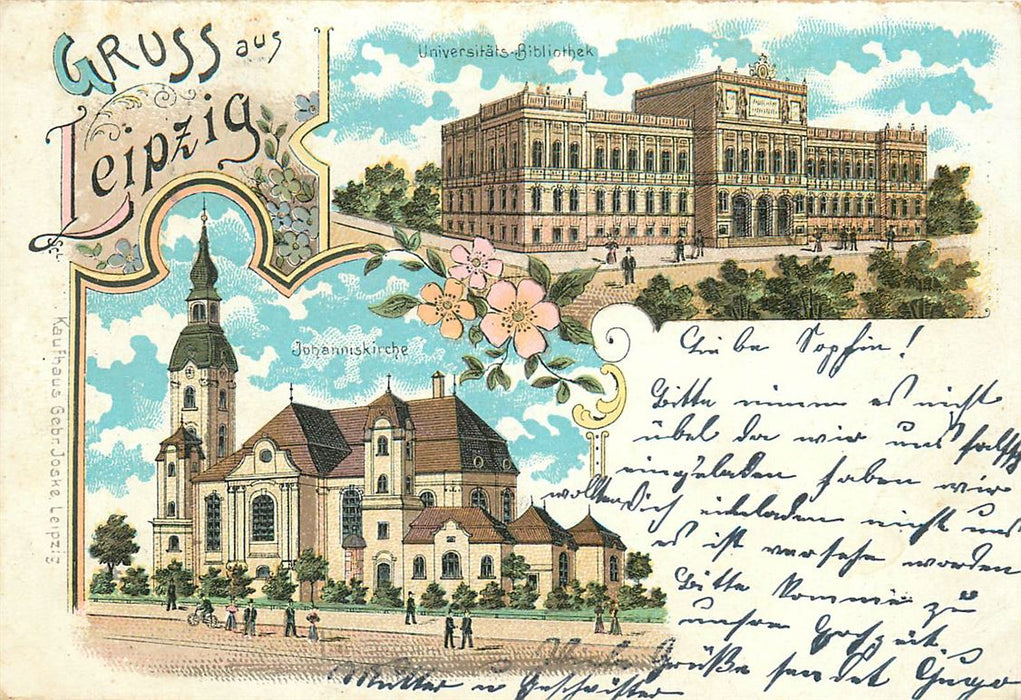 Gruss aus
Leipzig
Universitäts-Bibliothek
Johanniskirche
Kaufhaus Gebr. Joske, Leipzig
Liebe Sophie!
Bitte nimm es nicht
übel da wir uns falsch
eingeladen haben wir
wollten Dich einladen nicht uns
es ist versehe worden
Bitte komme zu
unsre Hochzeit
Grüße sendet
Mutter u Geschwister